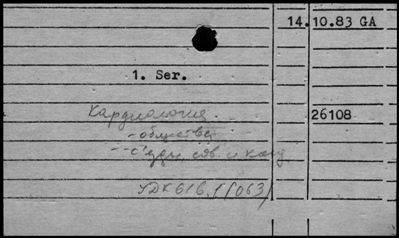 14.10.83 GA
1. Ser.
Кардиология
26108
- общества
- съезды, сов. и конф
УДК 616.1(063)